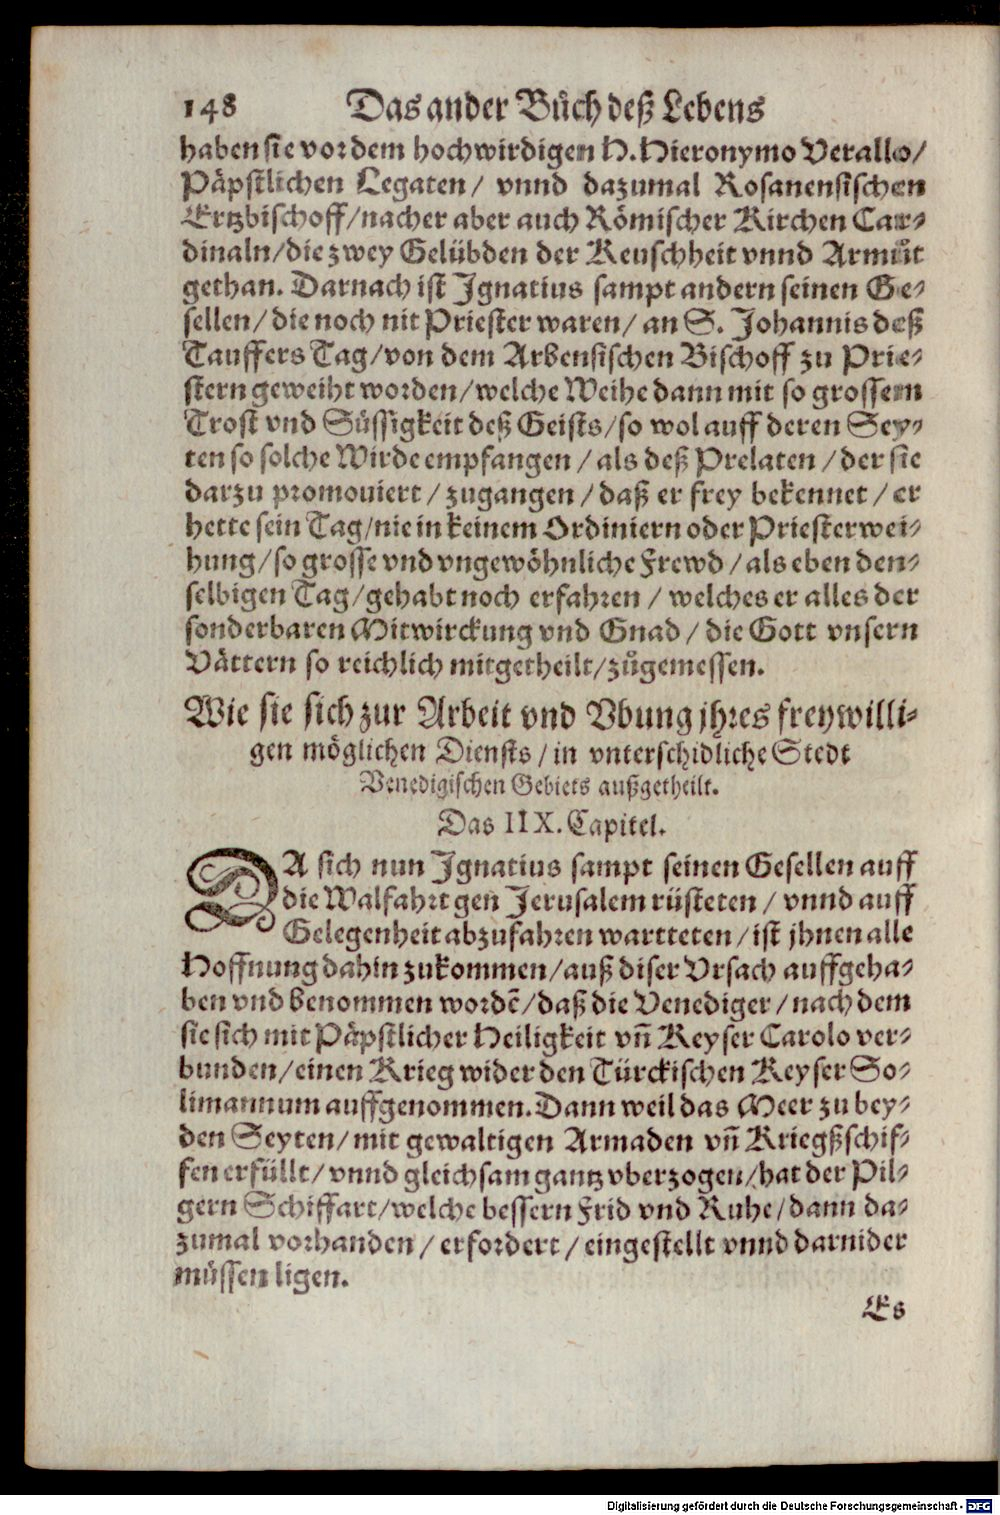 148 Das ander Bůch deß Lebens
haben sie vor dem hochwirdigen H. Hieronymo Verallo/
Påpstlichen Legaten/ vnnd dazumal Rosanensischen
Ertzbischoff/nacher aber auch Rômischer Kirchen Car-
dinaln/die zwey Gelübden der Keuschheit vnnd Armůt
gethan. Darnach ist Ignatius sampt andern seinen Ge-
sellen/ die noch nit Priester waren/ an S. Johannis deß
Tauffers Tag/von dem Arbensischen Bischoff zu Prie-
stern geweiht worden/welche Weihe dann mit so grossem
Trost vnd Süssigkeit deß Geists/so wol auff deren Sey-
ten so solche Wirde empfangen / als deß Prelaten / der sie
darzu promouiert / zugangen / daß er frey bekennet / er
hette sein Tag/nie in keinem Ordiniern oder Priesterwei-
hung/so grosse vnd vngewöhnliche Frewd / als eben den-
selbigen Tag/gehabt noch erfahren / welches er alles der
sonderbaren Mitwirckung vnd Gnad / die Gott vnsern
Våttern so reichlich mitgetheilt/zůgemessen.
Wie sie sich zur Arbeit vnd Vbung jhres freywilli-
gen möglichen Diensts / in vnterschidliche Stedt
Venedigischen Gebiets außgetheilt.
Das IIX. Capitel.
DA sich nun Ignatius sampt seinen Gesellen auff
die Walfahrt gen Jerusalem rüsteten / vnnd auff
Gelegenheit abzufahren wartteten/ist jhnen alle
Hoffnung dahin zukommen/auß diser Vrsach auffgeha-
ben vnd benommen wordē/daß die Venediger / nach dem
sie sich mit Påpstlicher Heiligkeit vñ Keyser Carolo ver-
bunden/einen Krieg wider den Türckischen Keyser So-
limannum auffgenommen. Dann weil das Meer zu bey-
den Seyten/mit gewaltigen Armaden vñ Kriegßschif-
fen erfüllt/ vnnd gleichsam gantz vberzogen/hat der Pil-
gern Schiffart/welche bessern Frid vnd Ruhe/dann da-
zumal vorhanden / erfordert / eingestellt vnnd darnider
müssen ligen.
Es
Digitalisierung gefördert durch die Deutsche Forschungsgemeinschaft - DFG